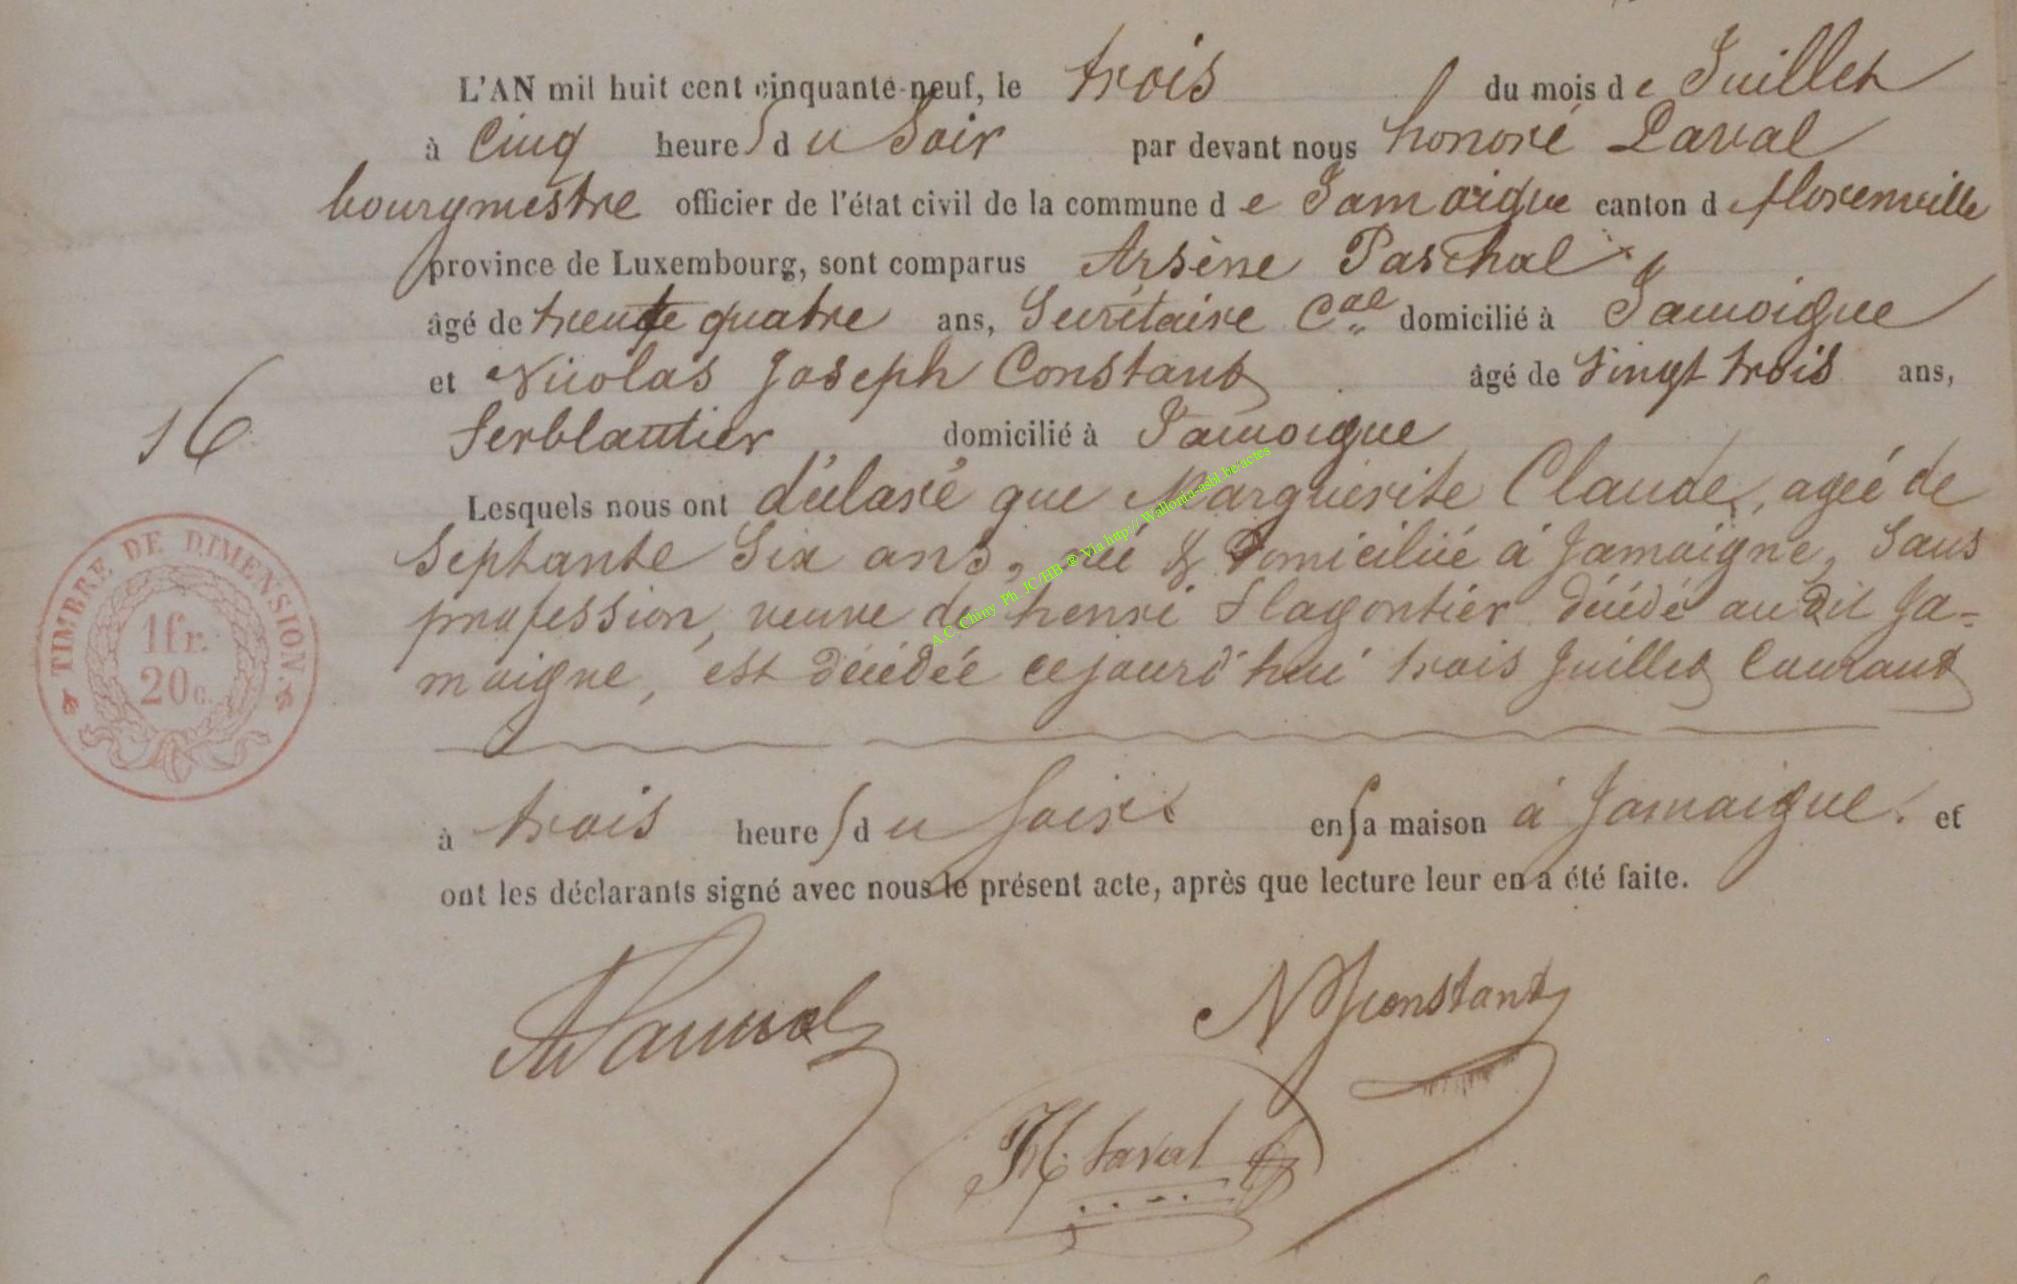 L'AN mil huit cent cinquante-neuf, le trois du mois de Juillet
à Cinq heures du Soir par devant nous honoré Laval
bourgmestre officier de l'état civil de la commune de Jamoigne canton d florenville
province de Luxembourg, sont comparus Arsène Paschal
âgé de trente quatre ans, Secrétaire Cal domicilié à Jamoigne
et Nicolas Joseph Constant âgé de Vingt trois ans,
ferblantier domicilié à Jamoigne
16
Lesquels nous ont déclaré que Marguerite Claude, agée de
Septante Six ans, née & Domiciliée à Jamoigne, Sans
profession, veuve de henri Slagontier décédé au dit Ja-
moigne, est décédée cejourd'hui trois Juillet Courant
à trois heures du Soir en sa maison à Jamoigne. et
ont les déclarants signé avec nous le présent acte, après que lecture leur en a été faite.
TIMBRE DE DIMENSION.
1 fr.
20 c.
A.C. Chiny Ph JC/HB ® Via http://Wallonia-asbl.be/actes
NJConstant
H. Laval